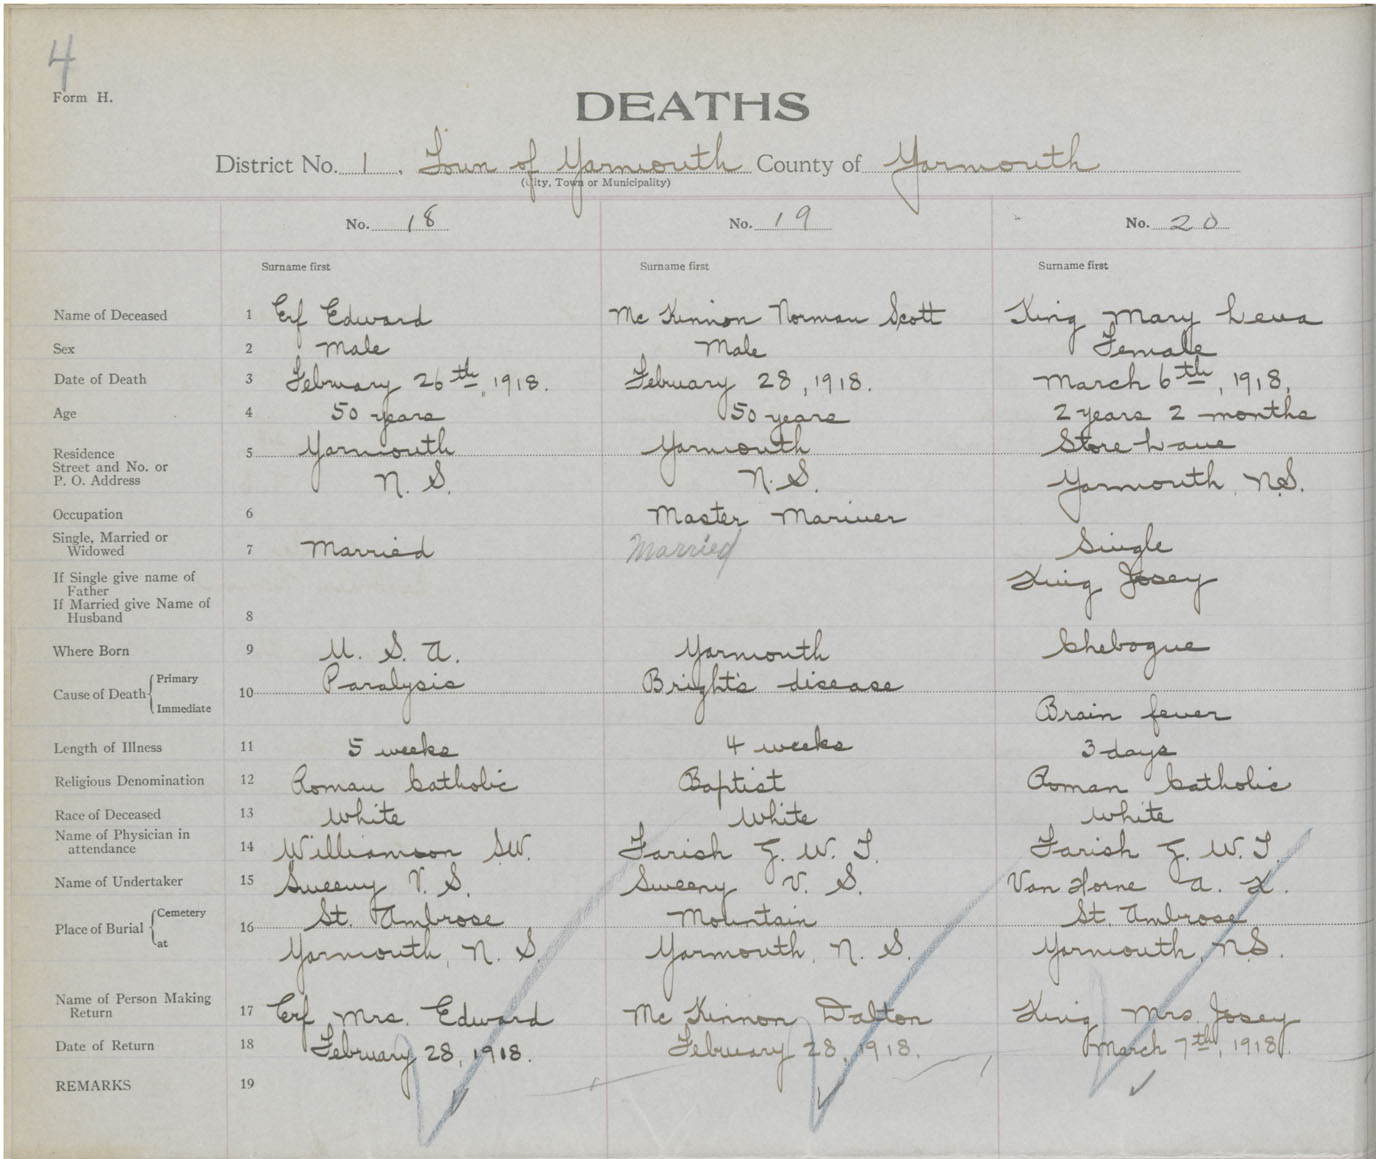 4
Form H.
DEATHS
District No. 1. Town of Yarmouth County of Yarmouth
(City, Town or Municipality)
No. 18 No. 19 No. 20
Surname first Surname first Surname first
Name of Deceased 1 Erf Edward Mc Kinnon Norman Scott King Mary Leva
Sex 2 Male Male Female
Date of Death 3 February 26th, 1918. February 28, 1918. March 6th, 1918,
Age 4 50 years 50 years 2 years 2 months
Residence 5 Yarmouth Yarmouth Store Lane
Street and No. or
P. O. Address N. S. N. S. Yarmouth, N.S.
Occupation 6 Master Mariner
Single, Married or
Widowed 7 Married Married Single
If Single give name of
Father King Josey
If Married give Name of
Husband 8
Where Born 9 U. S. A. Yarmouth Chebogue
Cause of Death Primary 10 Paralysis Bright's disease
Immediate Brain fever
Length of Illness 11 5 weeks 4 weeks 3 days
Religious Denomination 12 Roman Catholic Baptist Roman Catholic
Race of Deceased 13 White White White
Name of Physician in
attendance 14 Williamson S.W. Farish G. W. T. Farish G. W. T.
Name of Undertaker 15 Sweeny V. S. Sweeny V. S. Van Horne A. K.
Place of Burial Cemetery 16 St. Ambrose Mountain St. Ambrose
at Yarmouth, N. S. Yarmouth, N. S. Yarmouth, N.S.
Name of Person Making
Return 17 Erf Mrs. Edward Mc Kinnon Dalton King Mrs Josey
Date of Return 18 February 28, 1918. February 28, 1918. March 7th, 1918.
REMARKS 19